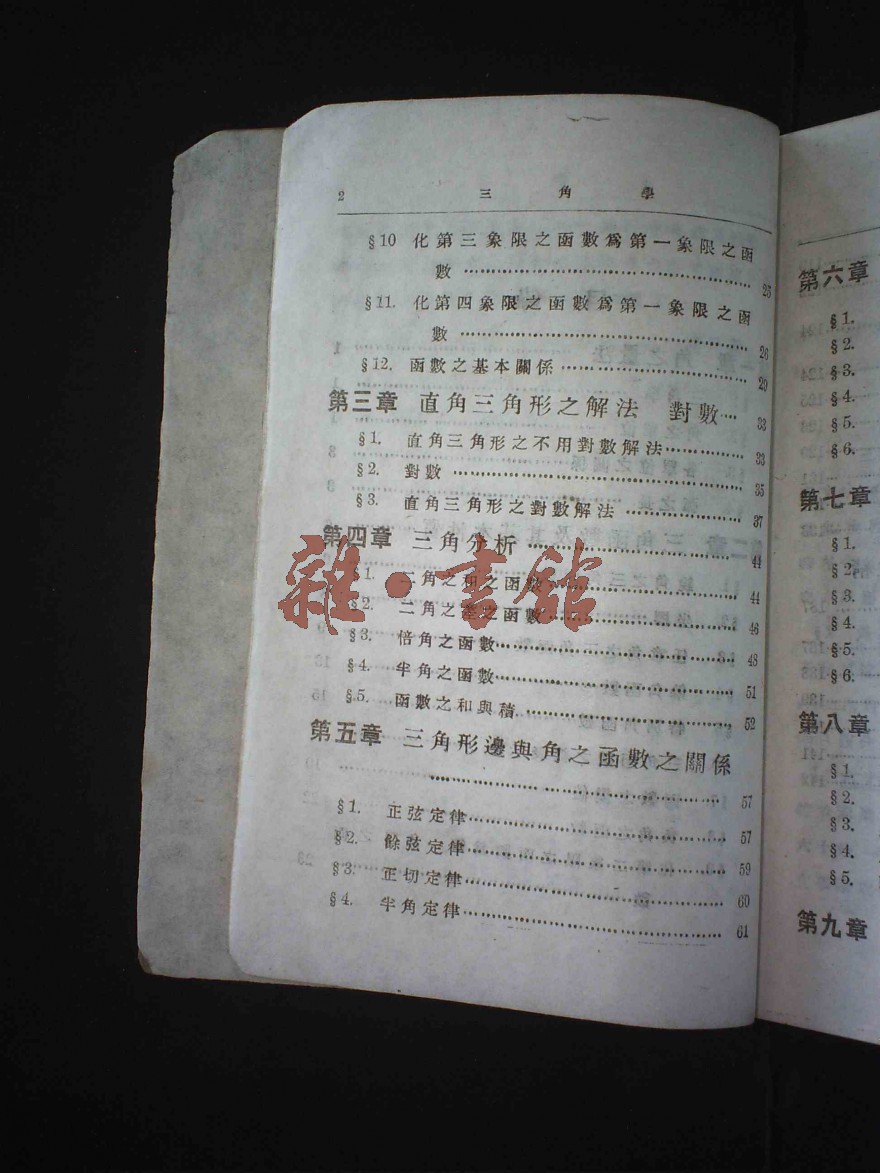 2 三角學
§10 化第三象限之函數爲第一象限之函
數 25
§11. 化第四象限之函數爲第一象限之函
數 26
§12. 函數之基本關係 29
第三章 直角三角形之解法 對數 33
§1. 直角三角形之不用對數解法 33
§2. 對數 35
§3. 直角三角形之對數解法 37
第四章 三角分析 44
§1. 二角之和之函數 44
§2. 二角之差之函數 46
§3. 倍角之函數 48
§4. 半角之函數 51
§5. 函數之和與積 52
第五章 三角形邊與角之函數之關係
57
§1. 正弦定律 57
§2. 餘弦定律 59
§3. 正切定律 60
§4. 半角定律 61
雜·書館
第六章
§1.
§2.
§3.
§4.
§5.
§6.
第七章
§1.
§2.
§3.
§4.
§5.
§6.
第八章
§1.
§2.
§3.
§4.
§5.
第九章